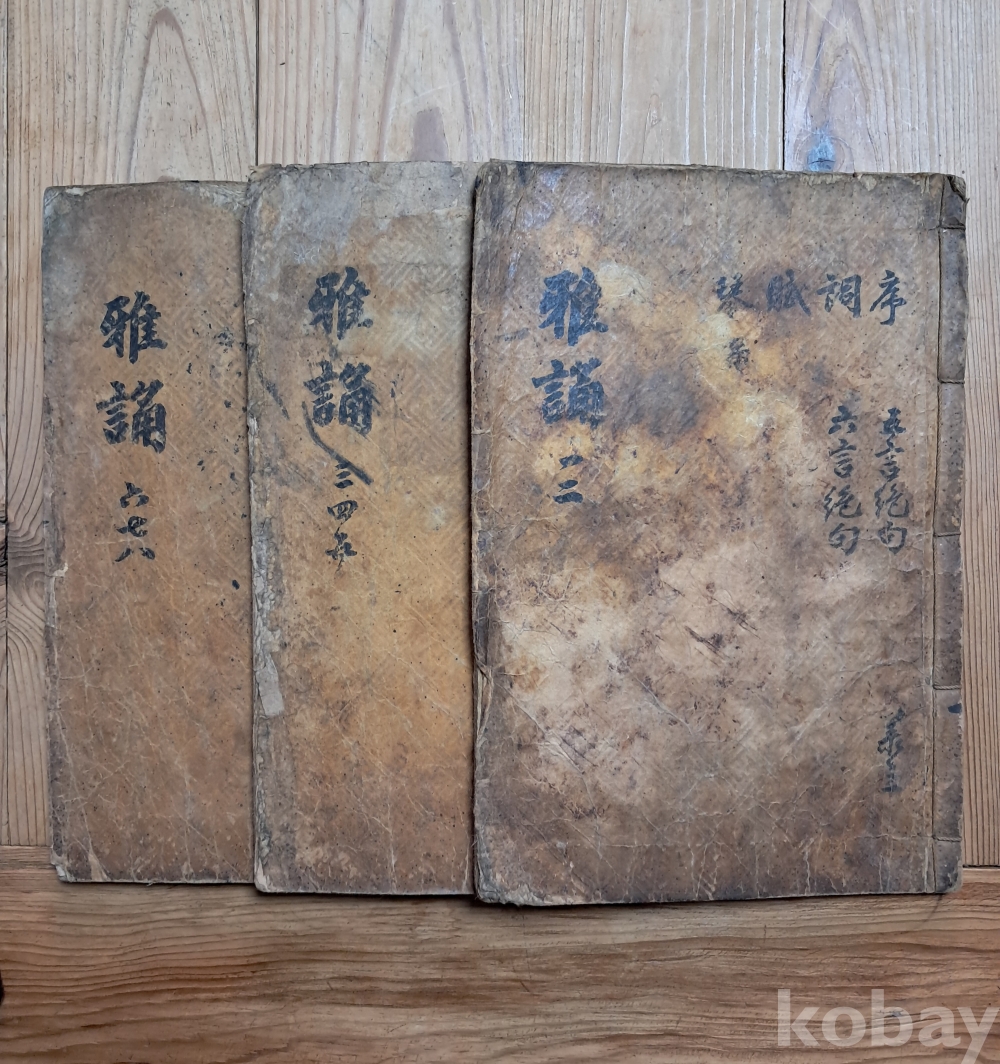 序
詞
賦
琴
五言絶句
六言絶句
雅誦 一二
雅誦 三四五
雅誦 六七八
kobay